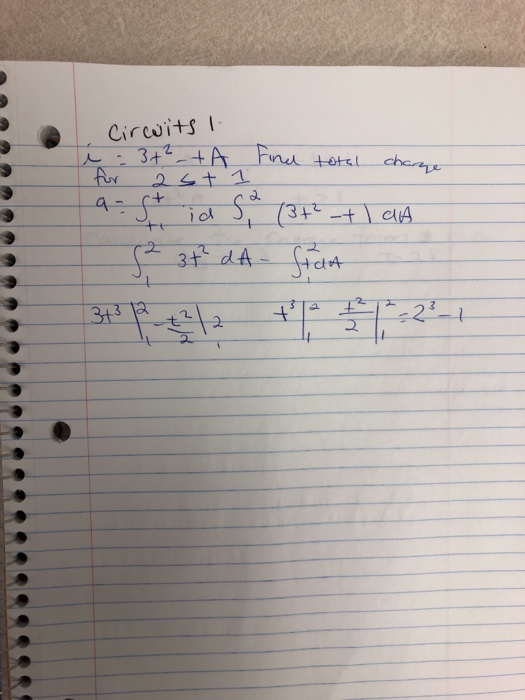 Circuits 1
i = 3t² - t A Find total charge
for 2 ≤ t 1
q = ∫ₜ₁ᵗ id ∫₁² (3t² - t) dA
∫₁² 3t² dA - ∫₁² t dA
3t³ |₁² - t²/2 |₁² t³ |₁² t²/2 |₁² = 2³ - 1